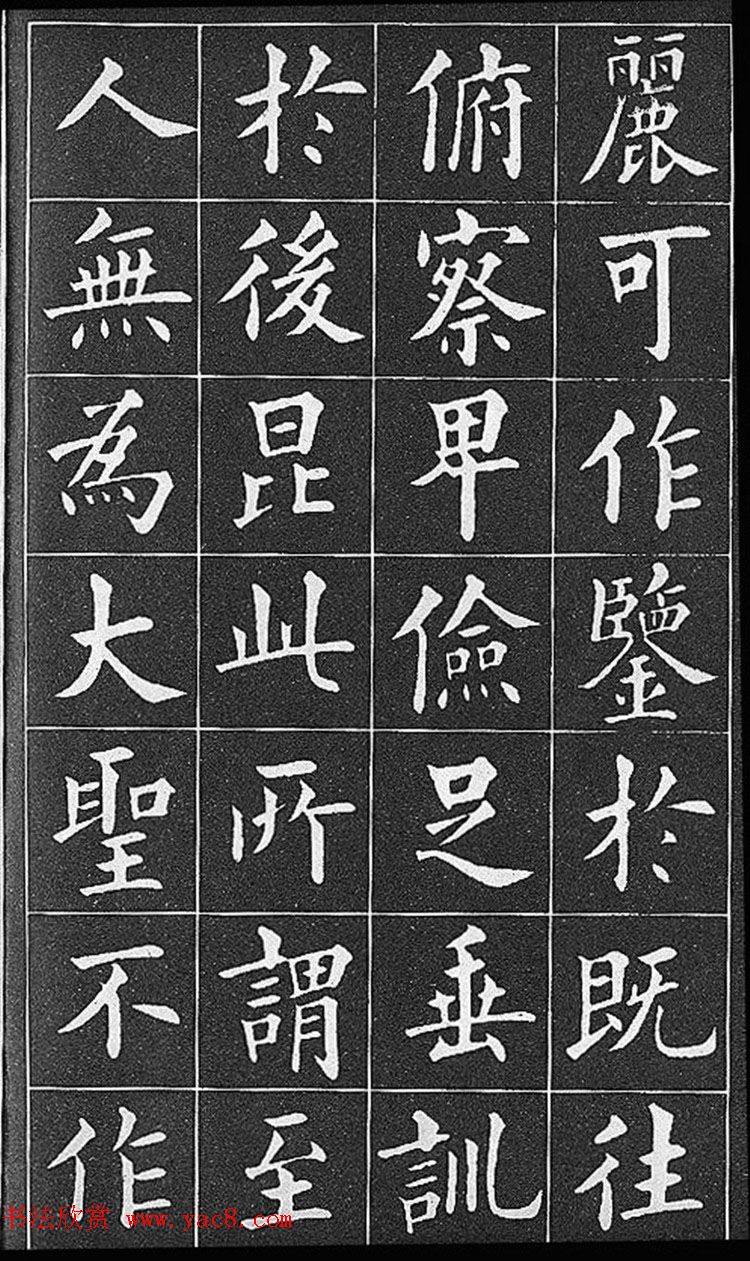 麗可作鑒於既往
俯察卑儉足垂訓
於後昆此所謂至
人無為大聖不作
书法欣赏 www.yac8.com